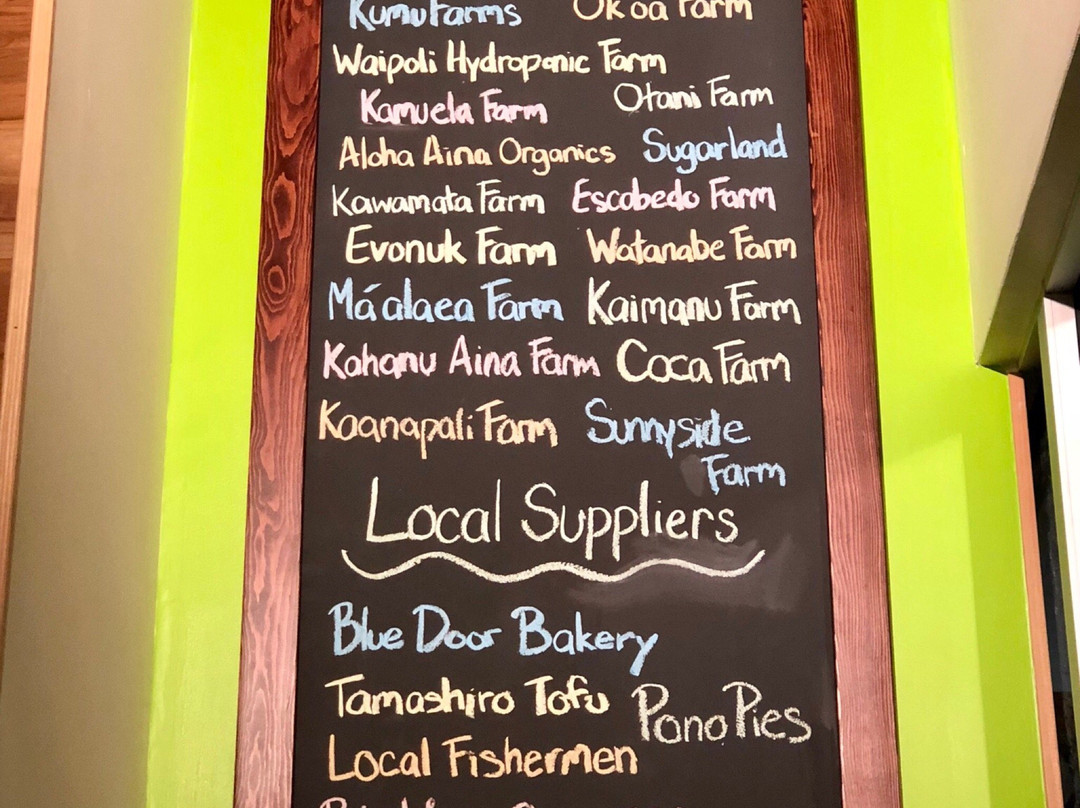 Kumu Farms Okoa Farm
Waipoli Hydroponic Farm
Kamuela Farm Otani Farm
Aloha Aina Organics Sugarland
Kawamata Farm Escobedo Farm
Evonuk Farm Watanabe Farm
Má'alaea Farm Kaimanu Farm
Kahanu Aina Farm Coca Farm
Kaanapali Farm Sunnyside
Farm
Local Suppliers
Blue Door Bakery
Tamashiro Tofu Pono Pies
Local Fishermen